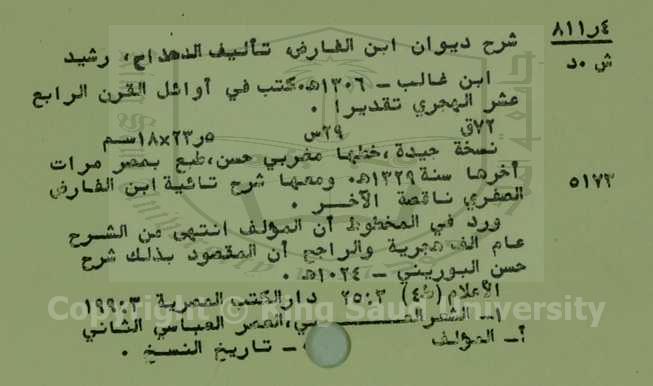 ٨١١ر٤
ش ٠د
شرح ديوان ابن الفارض، تأليف الدحداح، رشيد
ابن غالب - ١٣٠٦هـ. كتب في أوائل القرن الرابع
عشر الهجري تقديرا .
٧٢ق ٢٩س ٢٣٫٥×١٨سم
نسخة جيدة، خطها مغربي حسن، طبع بمصر مرات
آخرها سنة ١٣٢٩هـ. ومعها شرح تائية ابن الفارض
الصغرى ناقصة الآخر .
٥١٧٣
ورد في المخطوط أن المؤلف انتهى من الشرح
عام الف هجرية والراجح أن المقصود بذلك شرح
حسن البوريني - ١٠٢٤هـ .
الأعلام (ط٤) ٢٥:٣ دار الكتب المصرية ١٩٩:٣
١- الشعر العربي، العصر العباسي الثاني
أ- المؤلف - تاريخ النسخ .
Copyright © King Saud University